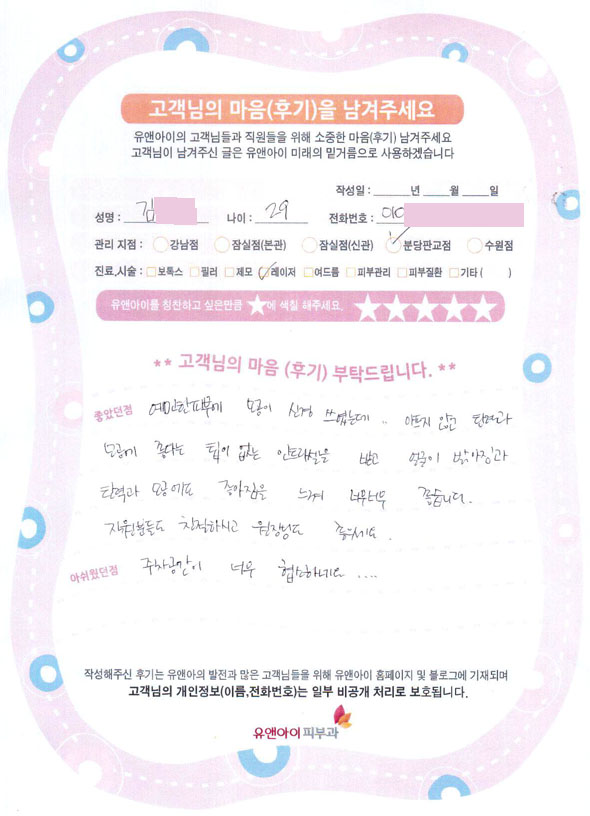 고객님의 마음(후기)을 남겨주세요
유앤아이의 고객님들과 직원들을 위해 소중한 마음(후기) 남겨주세요
고객님이 남겨주신 글은 유앤아이 미래의 밑거름으로 사용하겠습니다
작성일 : ______년 _____월 _____일
성명 : 김 나이 : 29 전화번호 : 010
관리 지점 : 강남점 잠실점(본관) 잠실점(신관) 분당판교점 수원점
진료,시술 : 보톡스 필러 제모 레이저 여드름 피부관리 피부질환 기타 ( )
유앤아이를 칭찬하고 싶은만큼 ★에 색칠 해주세요. ★★★★★
** 고객님의 마음 (후기) 부탁드립니다. **
좋았던점 예민한피부에 모공이 신경 쓰였는데.. 아프지 않고 탄력과
모공에 좋다는 팁이 없는 인트라셀을 받고 얼굴이 밝아짐과
탄력과 모공에도 좋아짐을 느껴 너무너무 좋습니다.
직원분들도 친절하시고 원장님도 좋으세요.
아쉬웠던점 주차공간이 너무 협소하네요 ....
작성해주신 후기는 유앤아의 발전과 많은 고객님들을 위해 유앤아이 홈페이지 및 블로그에 기재되며
고객님의 개인정보(이름,전화번호)는 일부 비공개 처리로 보호됩니다.
유앤아이피부과